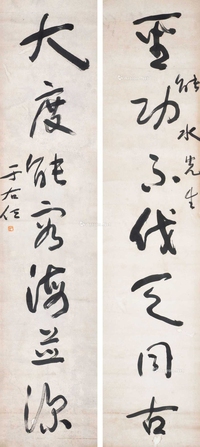 聖功不伐天同古
能水先生
大度能容海並深
于右任